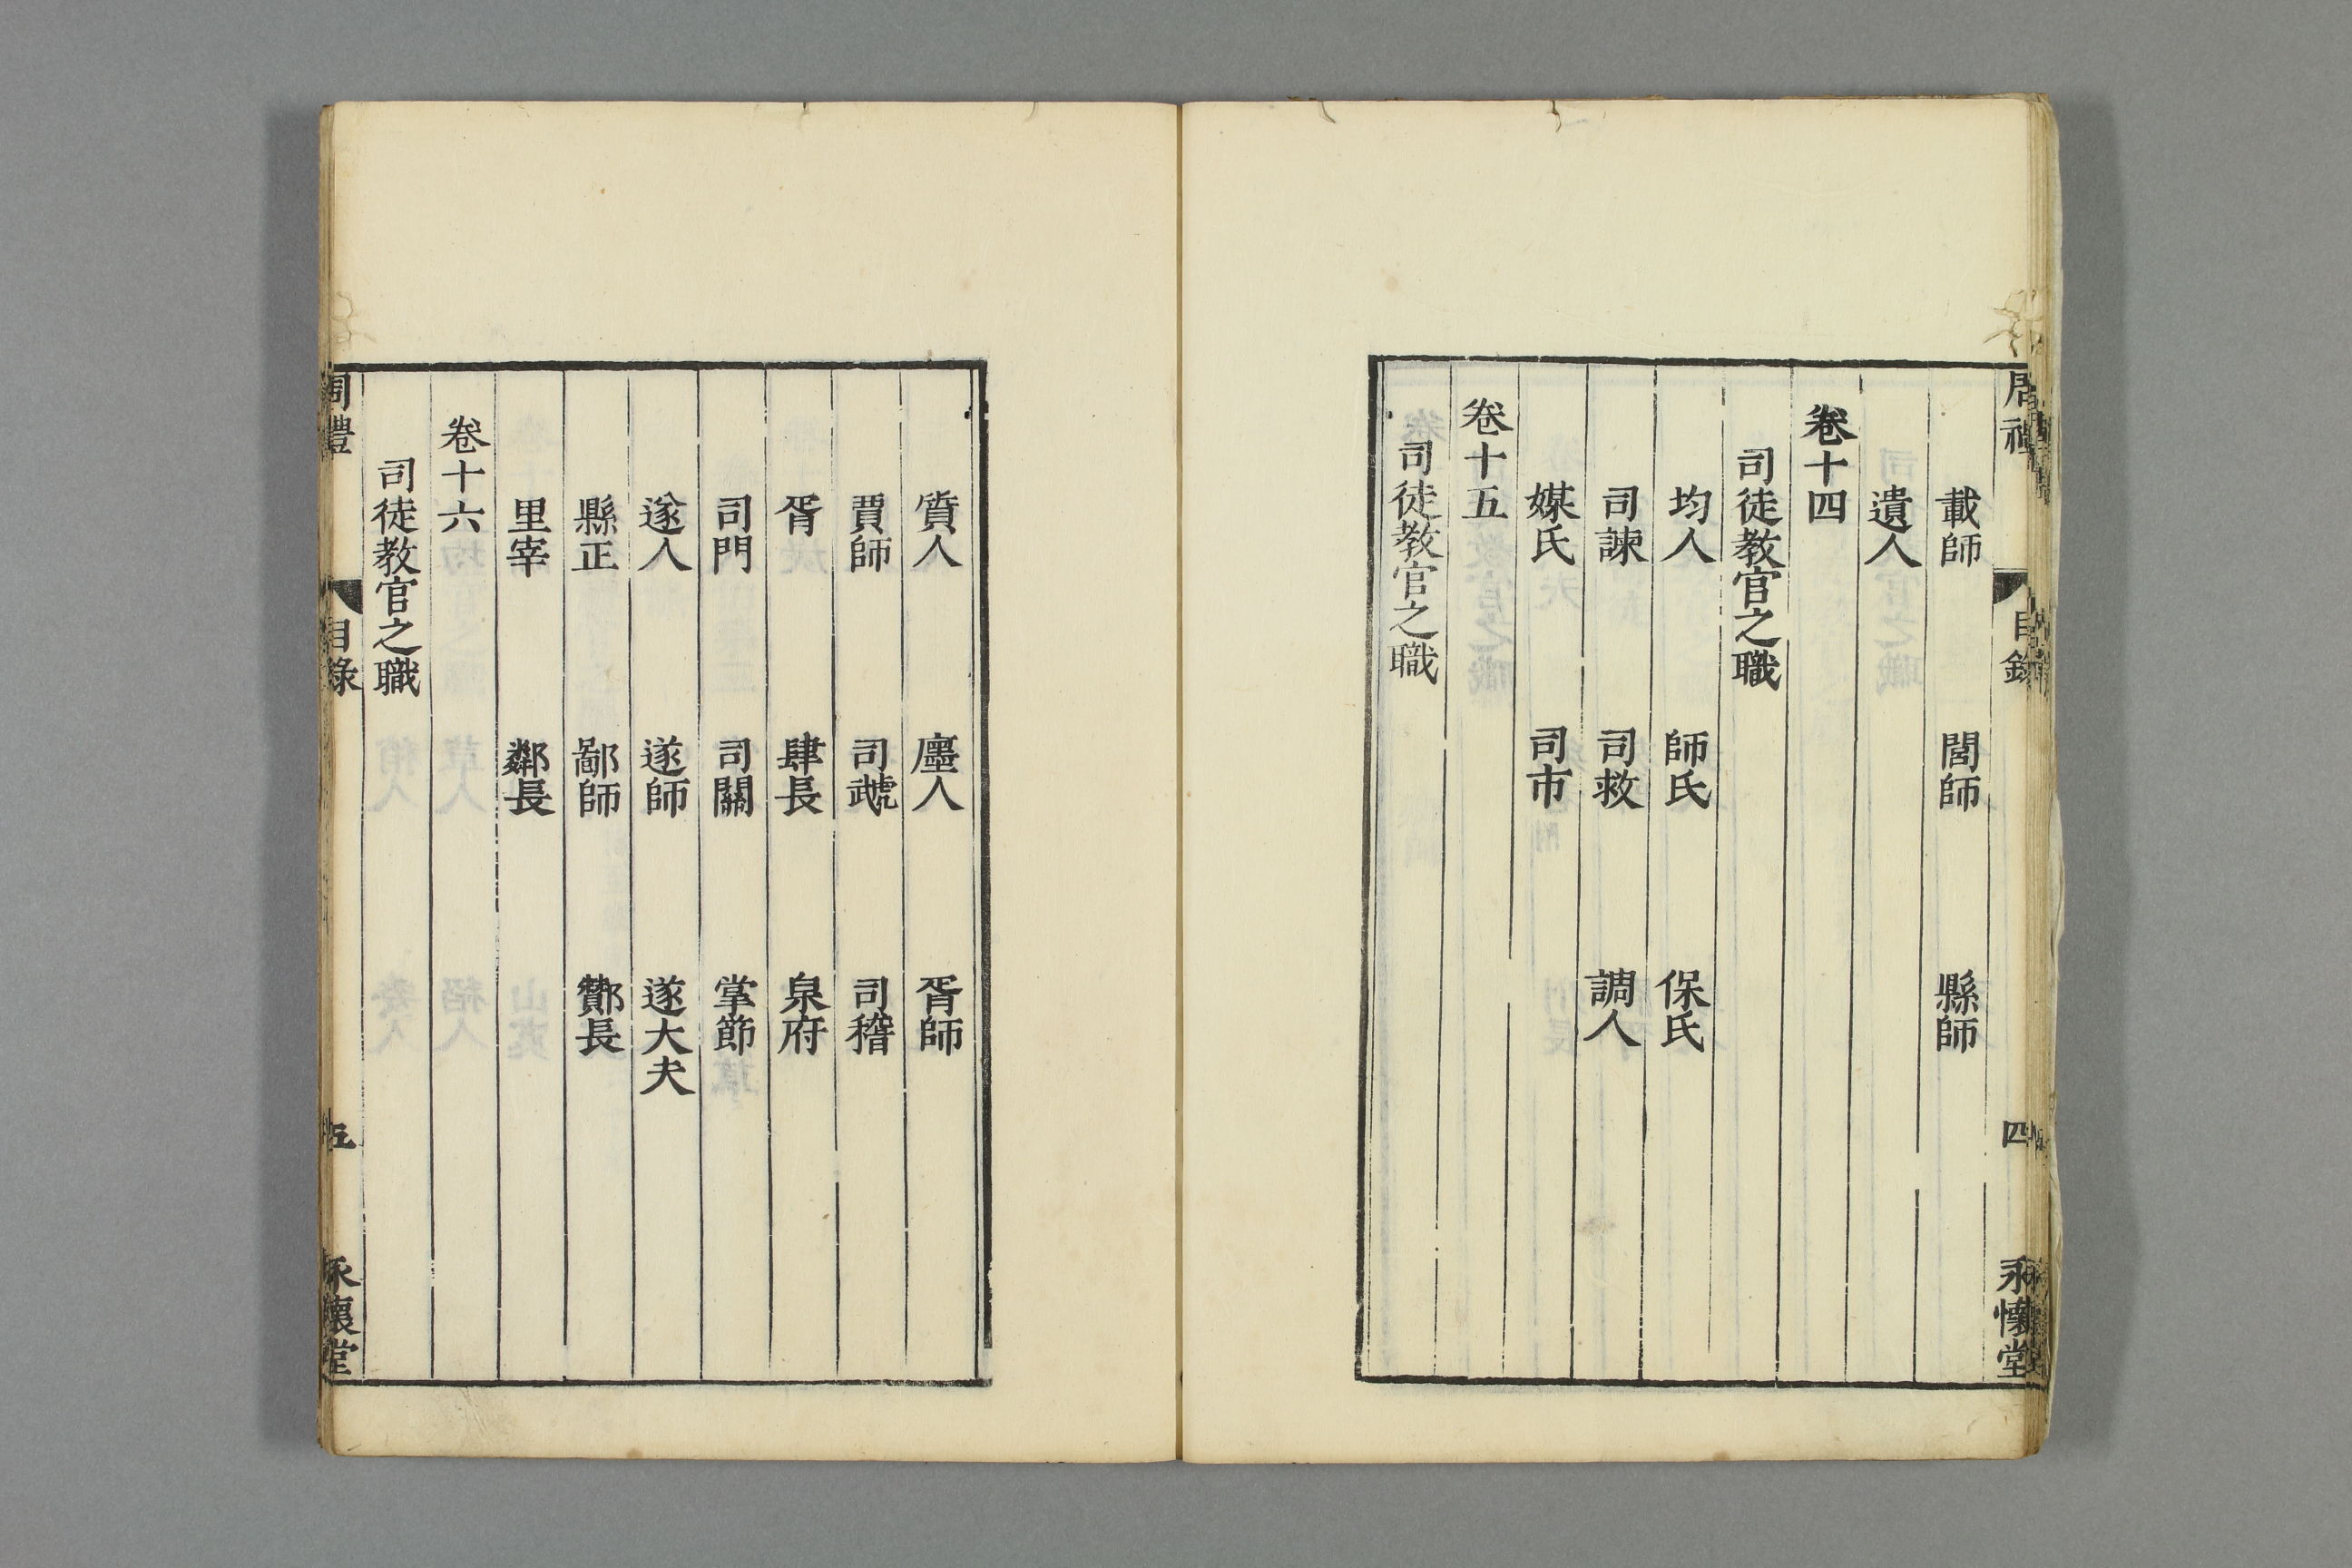 載師 閭師 縣師
遺人
卷十四
司徒教官之職
均人 師氏 保氏
司諫 司救 調人
媒氏 司市
卷十五
司徒教官之職
四
永懷堂
質人 廛人 胥師
賈師 司虣 司稽
胥 肆長 泉府
司門 司關 掌節
遂人 遂師 遂大夫
縣正 鄙師 酇長
里宰 鄰長
卷十六
司徒教官之職
周禮 目錄 五 永懷堂